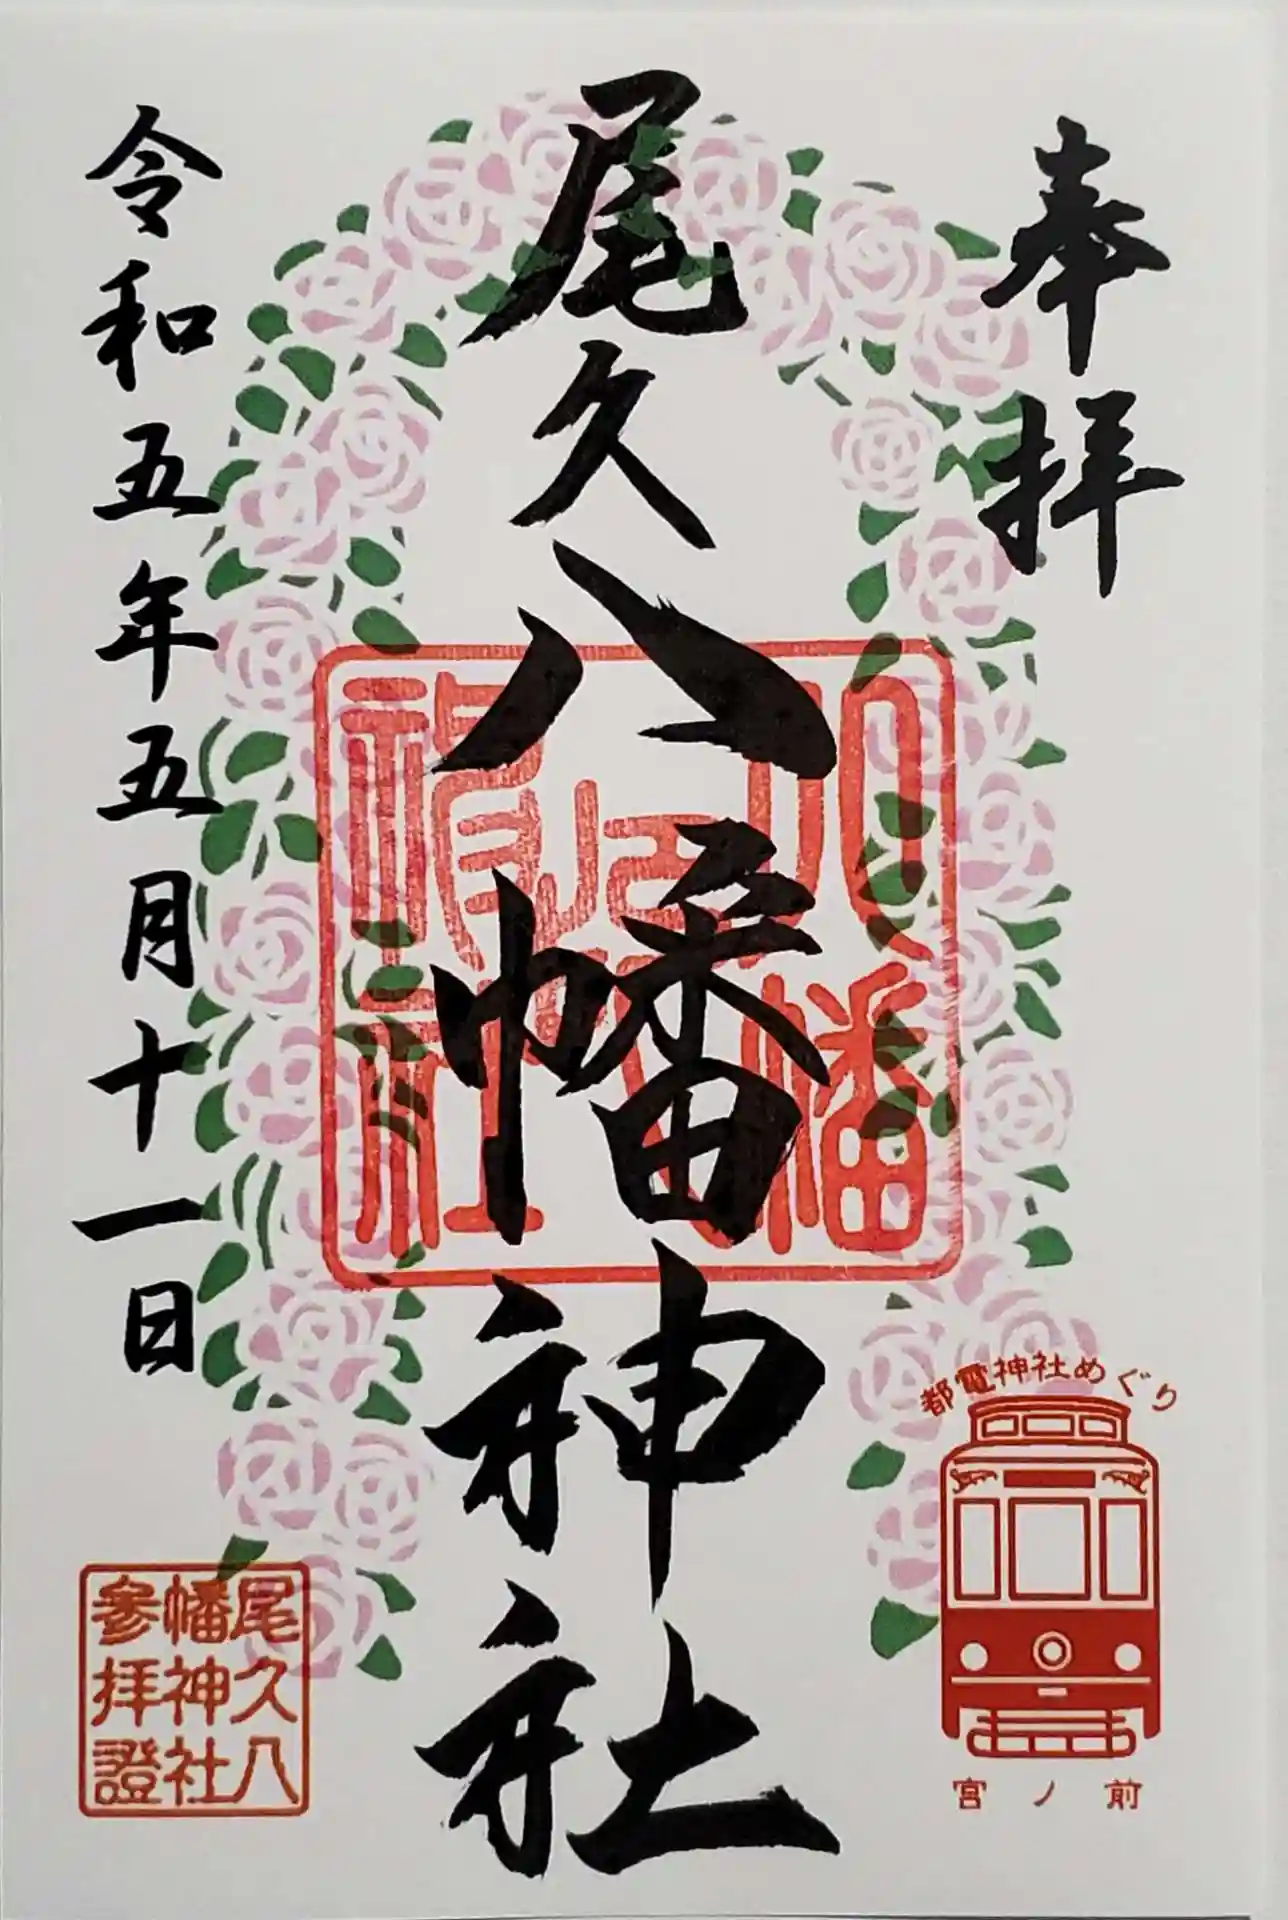 奉拝
尾久八幡神社
令和五年五月十一日
都電神社めぐり
宮ノ前
尾久八
幡神社
参拝證